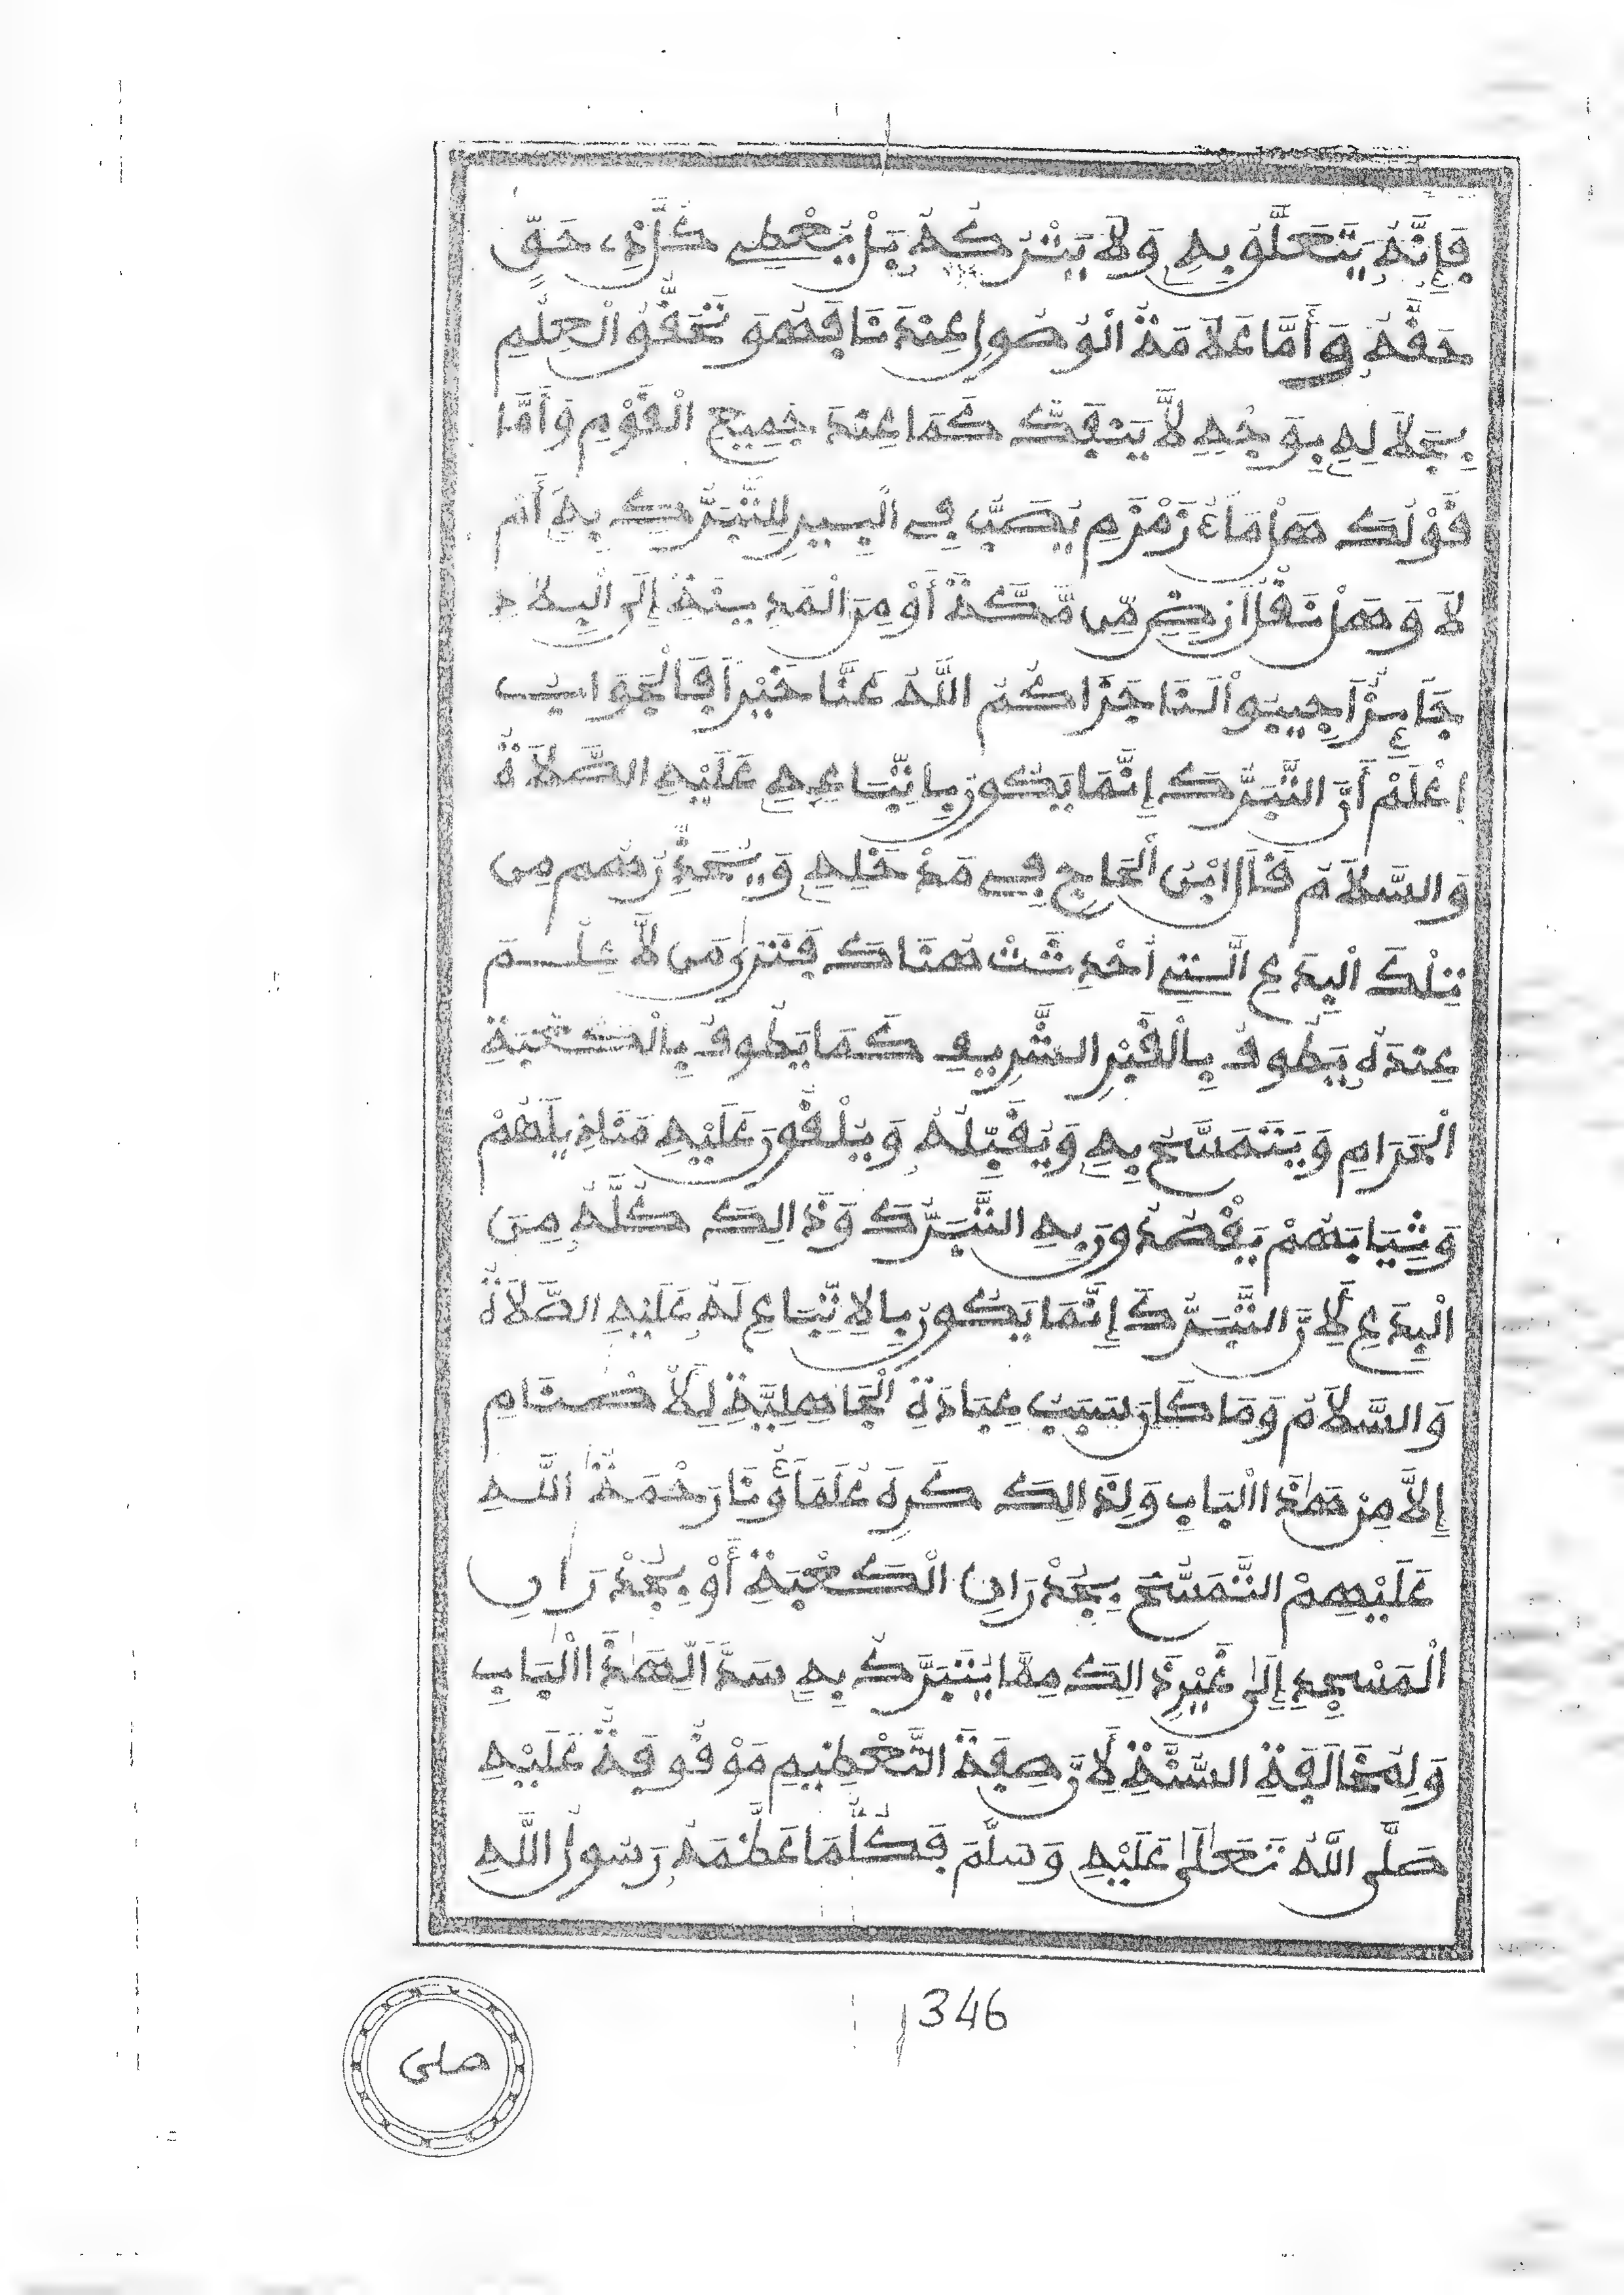 فَإِنَّهُ يَتَعَلَّقُ بِهِ وَلَا يَتْرُكُهُ بَلْ يُعْطِي كُلَّ ذِي حَقٍّ
حَقَّهُ وَأَمَّا عَلَامَةُ الْوُصُولِ عِنْدَنَا فَهُوَ تَحَقُّقُ الْعِلْمِ
بِجَلَالِهِ بِوَجْهٍ لَّا يَنفَكُّ كَمَا عِنْدَ جَمِيعِ الْقَوْمِ وَأَمَّا
قَوْلُكَ هَلْ مَاءُ زَمْزَمِ يُصَبُّ فِي الْبِيرِ لِلتَّبَرُّكِ بِهِ أَمْ
لَا وَهَلْ نَقْلُ أَرْضٍ مِّن مَّكَّةَ أَوْ مِنَ الْمَدِينَةِ إِلَى الْبِلَادِ
جَائِزٌ أَجِيبُواْ لَنَا جَزَاكُمُ اللَّهُ عَنَّا خَيْراً فَالْجَوَابُ
اِعْلَمْ أَنَّ التَّبَرُّكَ إِنَّمَا يَكُونُ بِاتِّبَاعِهِ عَلَيْهِ الصَّلَاةُ
وَالسَّلَامُ قَالَ ابْنُ الْحَاجِ فِي مَدْخَلِهِ وَيُحَذِّرُهُم مِن
تِلْكَ الْبِدَعِ الَّتِي أُحْدِثَتْ هُنَاكَ فَتَرَى مَن لَّا عِلْمَ
عِنْدَهُ يَطُوفُ بِالْقَبْرِ الشَّرِيفِ كَمَا يَطُوفُ بِالْكَعْبَةِ
الْحَرَامِ وَيَتَمَسَّحُ بِهِ وَيُقَبِّلُهُ وَيُلْقُونَ عَلَيْهِ مَنَادِيلَهُمْ
وَثِيَابَهُمْ يَقْصُدُونَ بِهِ التَّبَرُّكَ وَذَالِكَ كُلُّهُ مِنَ
الْبِدَعِ لِأَنَّ التَّبَرُّكَ إِنَّمَا يَكُونُ بِالِاتِّبَاعِ لَهُ عَلَيْهِ الصَّلَاةُ
وَالسَّلَامُ وَمَا كَانَ سَبَبُ عِبَادَةِ الْجَاهِلِيَّةِ لِلْأَصْنَامِ
إِلَّا مِنْ هَٰذَا الْبَابِ وَلِذَالِكَ كَرِهَ عُلَمَاؤُنَا رَحْمَةُ اللَّهِ
عَلَيْهِمْ التَّمَسُّحَ بِجُدْرَانِ الْكَعْبَةِ أَوْ بِجُدْرَانِ
الْمَسْجِدِ إِلَىٰ غَيْرِ ذَالِكَ مِمَّا يُتَبَرَّكُ بِهِ سَدّاً لِّهَٰذَا الْبَابِ
وَلِمُخَالَفَةِ السُّنَّةِ لِأَنَّ صِفَةَ التَّعْظِيمِ مَوْقُوفَةٌ عَلَيْهِ
صَلَّى اللَّهُ تَعَالَىٰ عَلَيْهِ وَسَلَّمَ فَكُلُّمَا عَظَّمَهُ رَسُولُ اللَّهِ
346
صلى